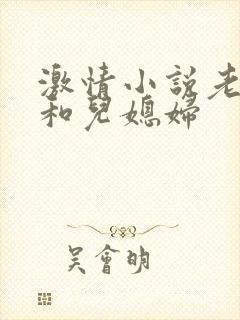 激情小説老
和兒媳婦
吳會明